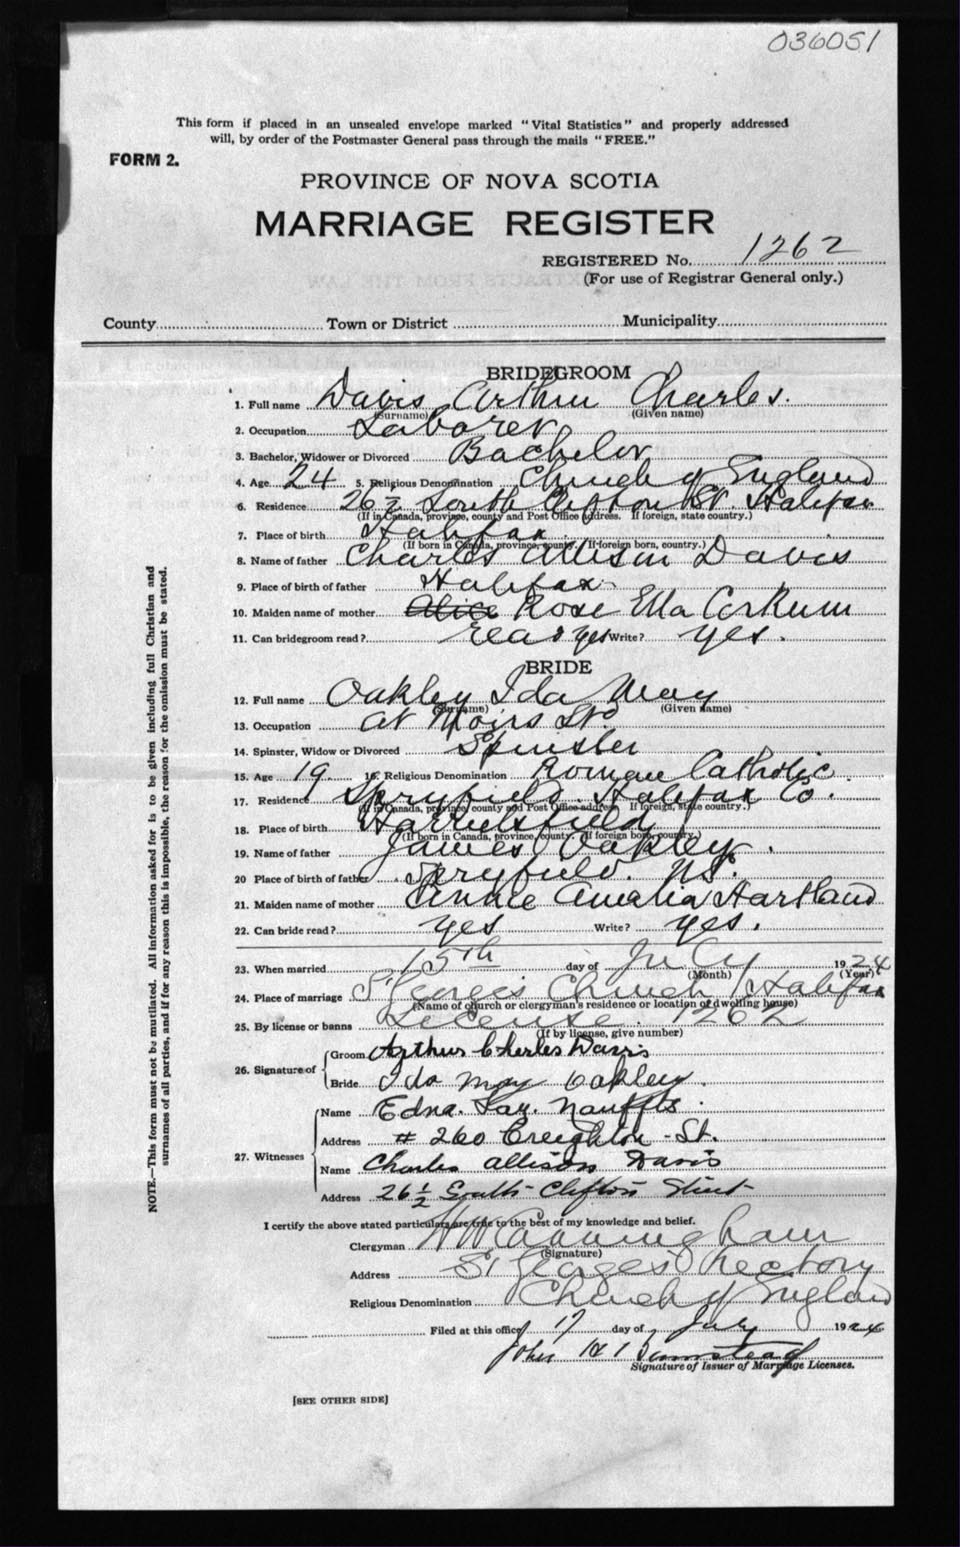 036051
This form if placed in an unsealed envelope marked "Vital Statistics" and properly addressed
will, by order of the Postmaster General pass through the mails "FREE."
FORM 2.
PROVINCE OF NOVA SCOTIA
MARRIAGE REGISTER
REGISTERED No. 1262
(For use of Registrar General only.)
County Town or District Municipality
BRIDEGROOM
1. Full name Davis Arthur Charles.
(Surname) (Given name)
2. Occupation Laborer
3. Bachelor, Widower or Divorced Bachelor
4. Age 24 5. Religious Denomination Church of England
6. Residence 26½ South Clifton St. Halifax
(If in Canada, province, county and Post Office address. If foreign, state country.)
7. Place of birth Halifax
(If born in Canada, province, county. If foreign born, country.)
8. Name of father Charles Allison Davis
9. Place of birth of father Halifax
10. Maiden name of mother Alice Rose Ella Corkum
11. Can bridegroom read? read yes Write? yes.
BRIDE
12. Full name Oakley Ida May
(Surname) (Given name)
13. Occupation at Moirs
14. Spinster, Widow or Divorced Spinster
15. Age 19. 16. Religious Denomination Roman Catholic.
17. Residence Spryfield Halifax Co.
(If in Canada, province county and Post Office address. If foreign, state country.)
18. Place of birth Harrietsfield
(If born in Canada, province, county. If foreign born, country.)
19. Name of father James Oakley.
20 Place of birth of father Spryfield. NS.
21. Maiden name of mother Annie Amelia Hartland
22. Can bride read? yes Write? yes.
23. When married 15th day of July 1924
(Month) (Year)
24. Place of marriage St Georges Church Halifax
(Name of church or clergyman's residence or location of dwelling house)
25. By license or banns License. 1262
(If by license, give number)
26. Signature of Groom Arthur Charles Davis
Bride Ida May Oakley.
27. Witnesses Name Edna. Nauffts.
Address # 260 Creighton - St.
Name Charles Allison Davis
Address 26½ South Clifton Street
I certify the above stated particulars are true to the best of my knowledge and belief.
Clergyman H W Cunningham
(Signature)
Address St Georges Rectory
Religious Denomination Church of England
Filed at this office 17 day of July 1924
John
Signature of Issuer of Marriage Licenses.
[SEE OTHER SIDE]
NOTE.—This form must not be mutilated. All information asked for is to be given including full Christian and
surnames of all parties, and if for any reason this is impossible, the reason for the omission must be stated.